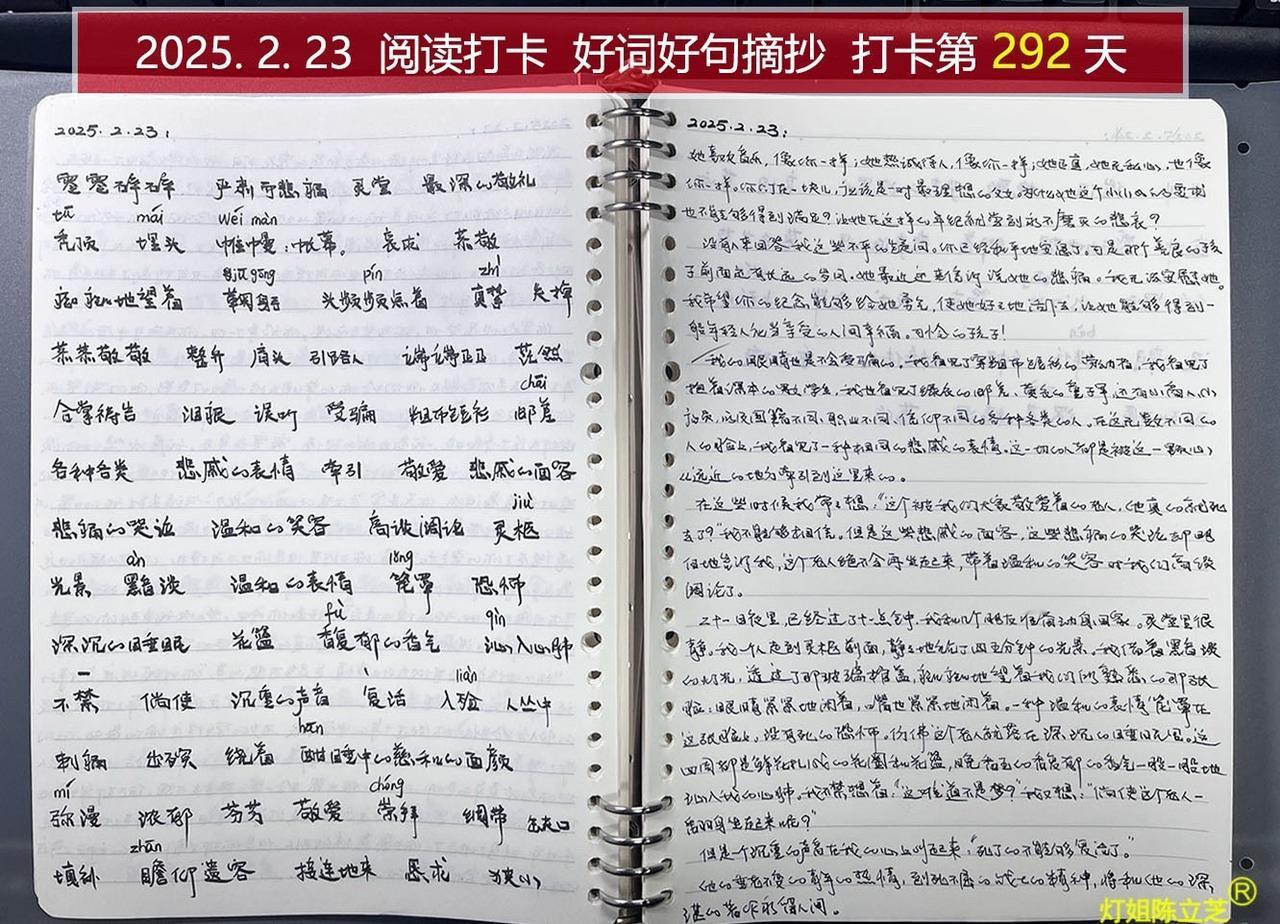 2025.2.23 阅读打卡 好词好句摘抄 打卡第 292 天
2025.2.23:
悲痛 灵堂 最深的敬礼
tū mái wéi màn
秃顶 埋头 帷幔:帐幕。 哀戚 恭敬
jū gōng pín zhì
痴痴地望着 鞠躬 头频频点着 真挚 失掉
恭恭敬敬 整齐 肩头 引路人 端端正正 茫然
chāi
合掌祷告 泪痕 误听 受骗 粗布短衫 邮差
各种各类 悲戚的表情 牵引 敬爱 悲戚的面容
jiù
悲痛的哭泣 温和的笑容 高谈阔论 灵柩
àn lǒng
光景 黯淡 温和的表情 笼罩 恐怖
fù qìn
深沉的睡眠 花篮 馥郁的香气 沁入心肺
liàn
不禁 倘使 沉重的声音 复活 入殓 人丛中
hān
刺痛 坐实 绕着 酣睡中的慈和的面颜
mí chóng
弥漫 浓郁 芬芳 敬爱 崇拜 绸带 缺口
zhān
填补 瞻仰遗容 接连地来 恳求 狭小
2025.2.23:
她喜欢音乐,像你一样;她热诚待人,像你一样;她正直,她无私心,也像
你一样。你们在一块儿,应该是一对最理想的父女。为什么她这个小小的心的要求
也不能够得到满足?让她在这样的年纪就尝到永不磨灭的悲哀?
没有人来回答我这些不平的疑问。你已经和平地安息了。可是那个善良的孩
子前面还有长远的岁月。她最近还来信诉说她的悲痛。我无法安慰她。
我希望你的纪念能够给她勇气,使她好好地活下去,让她能够得到一
般年轻人应当享受的人间幸福。可怜的孩子!
我的眼睛也是不会受骗的。我看见了穿粗布短衫的劳动者,我看见了
抱着课本的男女学生,我也看见了绿衣的邮差,黄衣的童子军,还有小商人,小
店员,以及国籍不同、职业不同、信仰不同的各种各类的人。在这无数不同的
人的脸上,我看见了一种相同的悲戚的表情。这一切的人都是被这一颗心
从远近的地方牵引到这里来的。
在这些时候我常常想:“这个被我们大家敬爱着的老人,他真的就死
去了?”我不能够相信。但是这些悲戚的面容,这些悲痛的哭泣却明
白地告诉我,这个老人绝不会再坐起来,带着温和的笑容对我们高谈
阔论了。
二十一日夜里,已经过了十一点钟,我和几个朋友准备动身回家。灵堂里很
静。我一个人走到灵柩前面,静静地站了四五分钟的光景。我借着黯淡
的灯光,透过了那玻璃棺盖,痴痴地望着我们所熟悉的那张
脸:眼睛紧紧地闭着,嘴也紧紧地闭着。一种温和的表情笼罩在
这张脸上,没有死的恐怖。仿佛这个老人就落在深沉的睡眠里。这
四周都是鲜花扎成的花圈和花篮,晚香玉的馥郁的香气一股一股地
沁入我的心肺。我不禁想着:“这难道不是梦?”我又想:“倘使这个老人一
翻身坐起来呢?”
但是一个沉重的声音在我的心上叫起来:“死了的不能够复活了。”
他的垂老不变的青年的热情,到死不屈的战士的精神,将和他的深
湛的著作永留人间。
灯姐陈立芝®